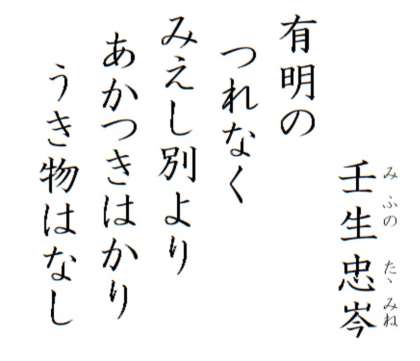 壬生忠岑
みふの たゝみね
有明の
つれなく
みえし別より
あかつきはかり
うき物はなし